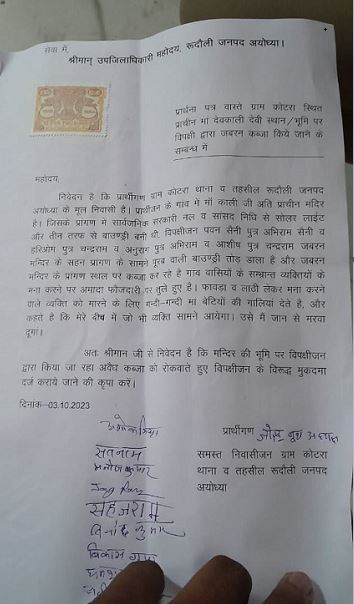 सेवा में,
श्रीमान् उपजिलाधिकारी महोदय, रूदौली जनपद अयोध्या।
प्रार्थना पत्र वास्ते ग्राम कोटरा स्थित
प्राचीन मां देवकाली देवी स्थान/भूमि पर
विपक्षी द्वारा जबरन कब्जा किये जाने के
सम्बन्ध में
महोदय,
निवेदन है कि प्रार्थीगण ग्राम कोटरा थाना व तहसील रूदौली जनपद
अयोध्या के मूल निवासी है। प्रार्थीजन के गांव में माँ काली जी अति प्राचीन मंदिर
है। जिसके प्रांगण में सार्वजनिक सरकारी नल व सांसद निधि से सोलर लाईट
और तीन तरफ से बाउण्ड्री बनी थी विपक्षीजन पवन सैनी पुत्र अभिराम सैनी व
हरिओम पुत्र चन्द्रराम व अनुराग पुत्र अभिराम व आशीष पुत्र चन्द्राम जबरन
मन्दिर के सहन प्रांगण के सामने पूरब वाली बाउण्ड्री तोड़ डाला है और जबरन
मन्दिर के प्रांगण स्थल पर कब्जा कर रहे है गांव वासियों के सम्भान्त व्यक्तियों के
मना करने पर अमादा फौजदारी पर तुले है। फावड़ा व लाठी लेकर मना करने
वाले व्यक्ति को मारने के लिए गन्दी-गन्दी मा बेटियों की गालियां देते है, और
कहते है कि मेरे बीच में जो भी व्यक्ति सामने आयेगा। उसे मैं जान से मरवा
दूगा।
अतः श्रीमान जी से निवेदन है कि मन्दिर की भूमि पर विपक्षीजन
द्वारा किया जा रहा अवैध कब्जा को रोकवाते हुए विपक्षीजन के विरूद्ध मुकदमा
दर्ज कराये जाने की कृपा करें।
दिनांक-03.10.2023
प्रार्थीगण
समस्त निवासीजन ग्राम कोटरा
थाना व तहसील रूदौली जनपद
अयोध्या
सतनाम
मनोज कुमार
सहजराम
विनोद कुमार
विकास गुप्ता